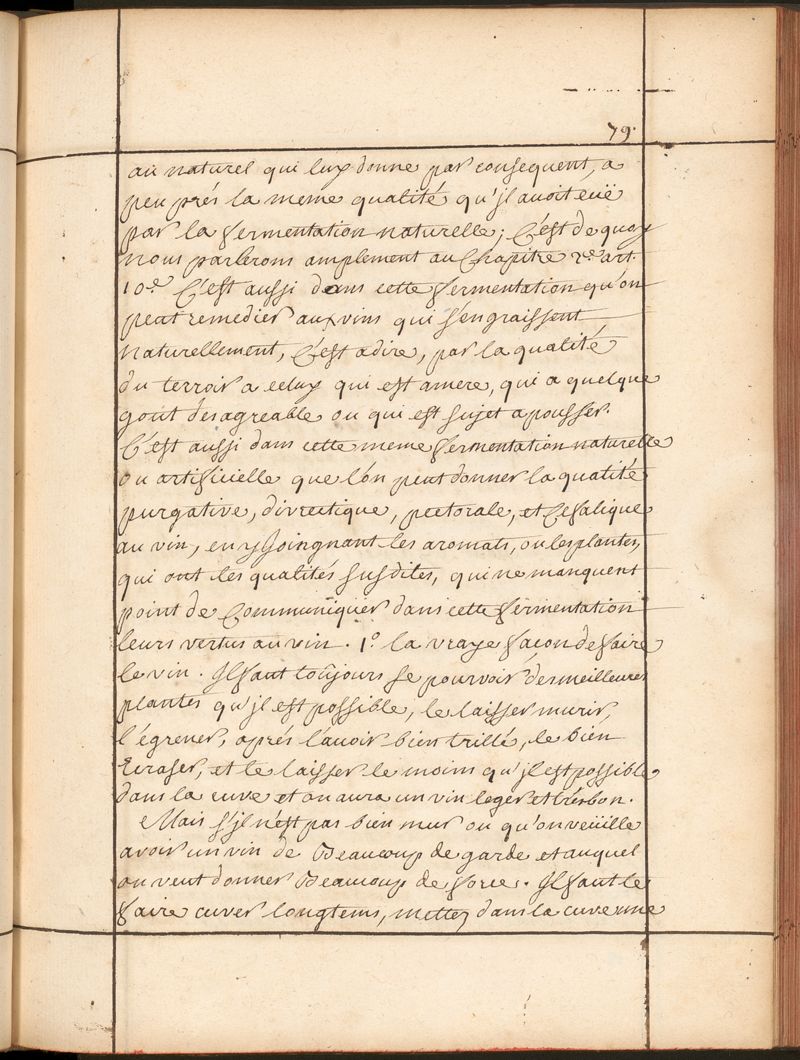 79.
au naturel qui luy donne par consequent, a
peu prés la meme qualité qu'jl avoit eüe
par la fermentation naturelle; C'est de quoy
nous parlerons amplement au Chapitre 2.e art.
10.e C'est aussi dans cette fermentation qu'on
peut remedier aux vins qui s'engraissent
naturellement, C'est adire, par la qualité
du terroir a celuy qui est amere, qui a quelque
gout desagreable ou qui est sujet a pousser.
C'est aussi dans cette meme fermentation naturelle
ou artificielle que l'on peut donner la qualité
purgative, diurectique, pectorale, et Cefalique
au vin, en y Joingnant les aromats, ou les plantes,
qui ont les qualités susdites, qui ne manquent
point de Communiquer dans cette fermentation
leurs vertus au vin. 1.o la vraye facon de faire
le vin. Jl faut toûjours se pourvoir des meilleures
plantes qu'jl est possible, le laisser murir,
l'égrener, aprés l'avoir bien trillé, le bien
Ecraser, et le laisser le moins qu'jl est possible
dans la cuve et on aura un vin leger et trés bon.
Mais s'jl n'est pas bien mur ou qu'on veüille
avoir un vin de Beaucoup de garde et auquel
on veut donner Beaucoup de force. Jl faut le
faire cuver longtems, mettez dans la cuve une